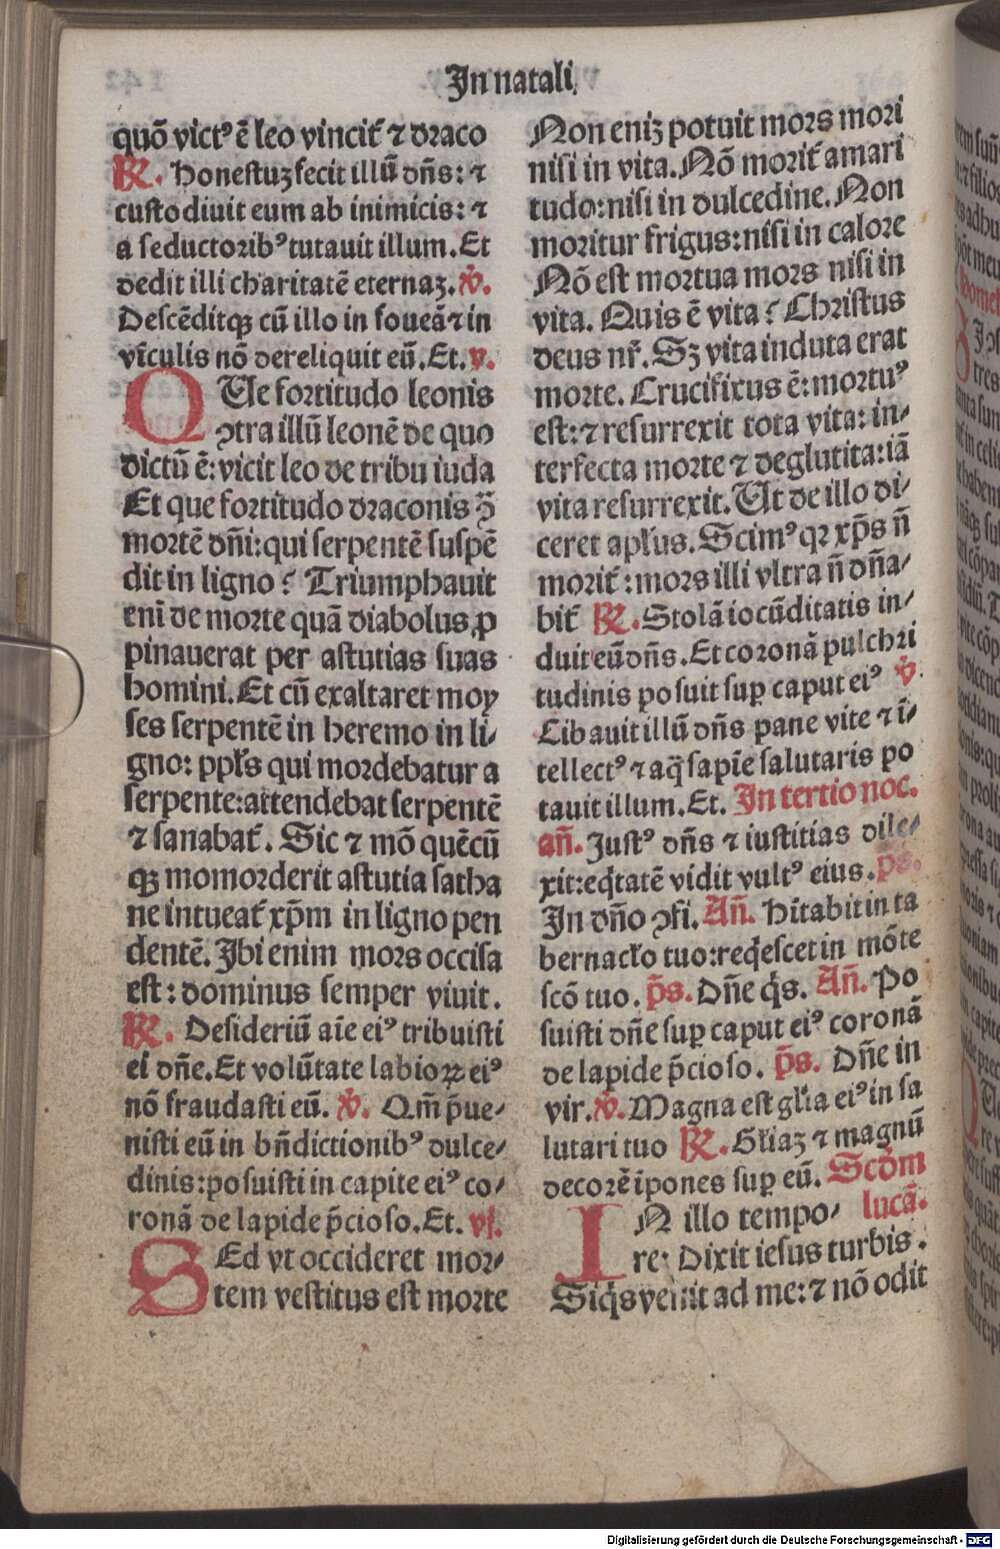 In natali.
quõ victꝰ ẽ leo vincit᷑ ⁊ draco
℟. Honestuꝫ fecit illũ dñs: ⁊
custodiuit eum ab inimicis: ⁊
a seductoribꝰ tutauit illum. Et
dedit illi charitatẽ eternaꝫ. ℣.
Descẽditqꝫ cũ illo in foueã ⁊ in
vĩculis nõ dereliquit eũ. Et. v.
QUe fortitudo leonis
ↄtra illũ leonẽ de quo
dictũ ẽ: vicit leo de tribu iuda
Et que fortitudo draconis ꝯ̃
mortẽ dñi: qui serpentẽ suspẽ
dit in ligno? Triumphauit
eni de morte quã diabolus ꝓ
pinauerat per astutias suas
homini. Et cũ exaltaret moy
ses serpentẽ in heremo in li⸗
gno: ppl̃s qui mordebatur a
serpente: attendebat serpentẽ
⁊ sanabat᷑. Sic ⁊ mõ quẽcũ
qꝫ momorderit astutia satha
ne intueat᷑ xp̃m in ligno pen
dentẽ. Ibi enim mors occisa
est: dominus semper viuit.
℟. Desideriũ aĩe eiꝰ tribuisti
ei dñe. Et volũtate labioꝝ eiꝰ
nõ fraudasti eũ. ℣. Qm̃ p̃ue⸗
nisti eũ in bñdictionibꝰ dulce⸗
dinis: posuisti in capite eiꝰ co⸗
ronã de lapide p̃cioso. Et. vj.
SEd vt occideret mor⸗
tem vestitus est morte
Non eniꝫ potuit mors mori
nisi in vita. Nõ morit᷑ amari
tudo: nisi in dulcedine. Non
moritur frigus: nisi in calore
Nõ est mortua mors nisi in
vita. Quis ẽ vita? Christus
deus nr̃. Sꝫ vita induta erat
morte. Crucifixus ẽ: mortuꝰ
est: ⁊ resurrexit tota vita: in⸗
terfecta morte ⁊ deglutita: iã
vita resurrexit. Ut de illo di⸗
ceret apl̃us. Scimꝰ qꝛ xp̃s ñ
morit᷑: mors illi vltra ñ dña⸗
bit᷑ ℟. Stolã iocũditatis in⸗
duit eũ dñs. Et coronã pulchri
tudinis posuit suꝑ caput eiꝰ ℣.
Cibauit illũ dñs pane vite ⁊ ĩ⸗
tellectꝰ ⁊ aq̃ sapĩe salutaris po
tauit illum. Et. In tertio noc.
añ. Justꝰ dñs ⁊ iustitias dile⸗
xit: eq̃tatẽ vidit vultꝰ eius. ps.
In dño ↄfi. Añ. Hĩtabit in ta
bernacl̃o tuo: req̃escet in mõte
scõ tuo. p̃s. Dñe q̃s. Añ. Po
suisti dñe suꝑ caput eiꝰ coronã
de lapide p̃cioso. p̃s. Dñe in
vir. ℣. Magna est gl̃ia eiꝰ in sa
lutari tuo ℟. Gl̃iaꝫ ⁊ magnũ
decorẽ ĩpones suꝑ eũ. Scd̃m
lucã.
IN illo tempo⸗
re: Dixit iesus turbis.
Siq̃s venit ad me: ⁊ nõ odit
Digitalisierung gefördert durch die Deutsche Forschungsgemeinschaft - DFG